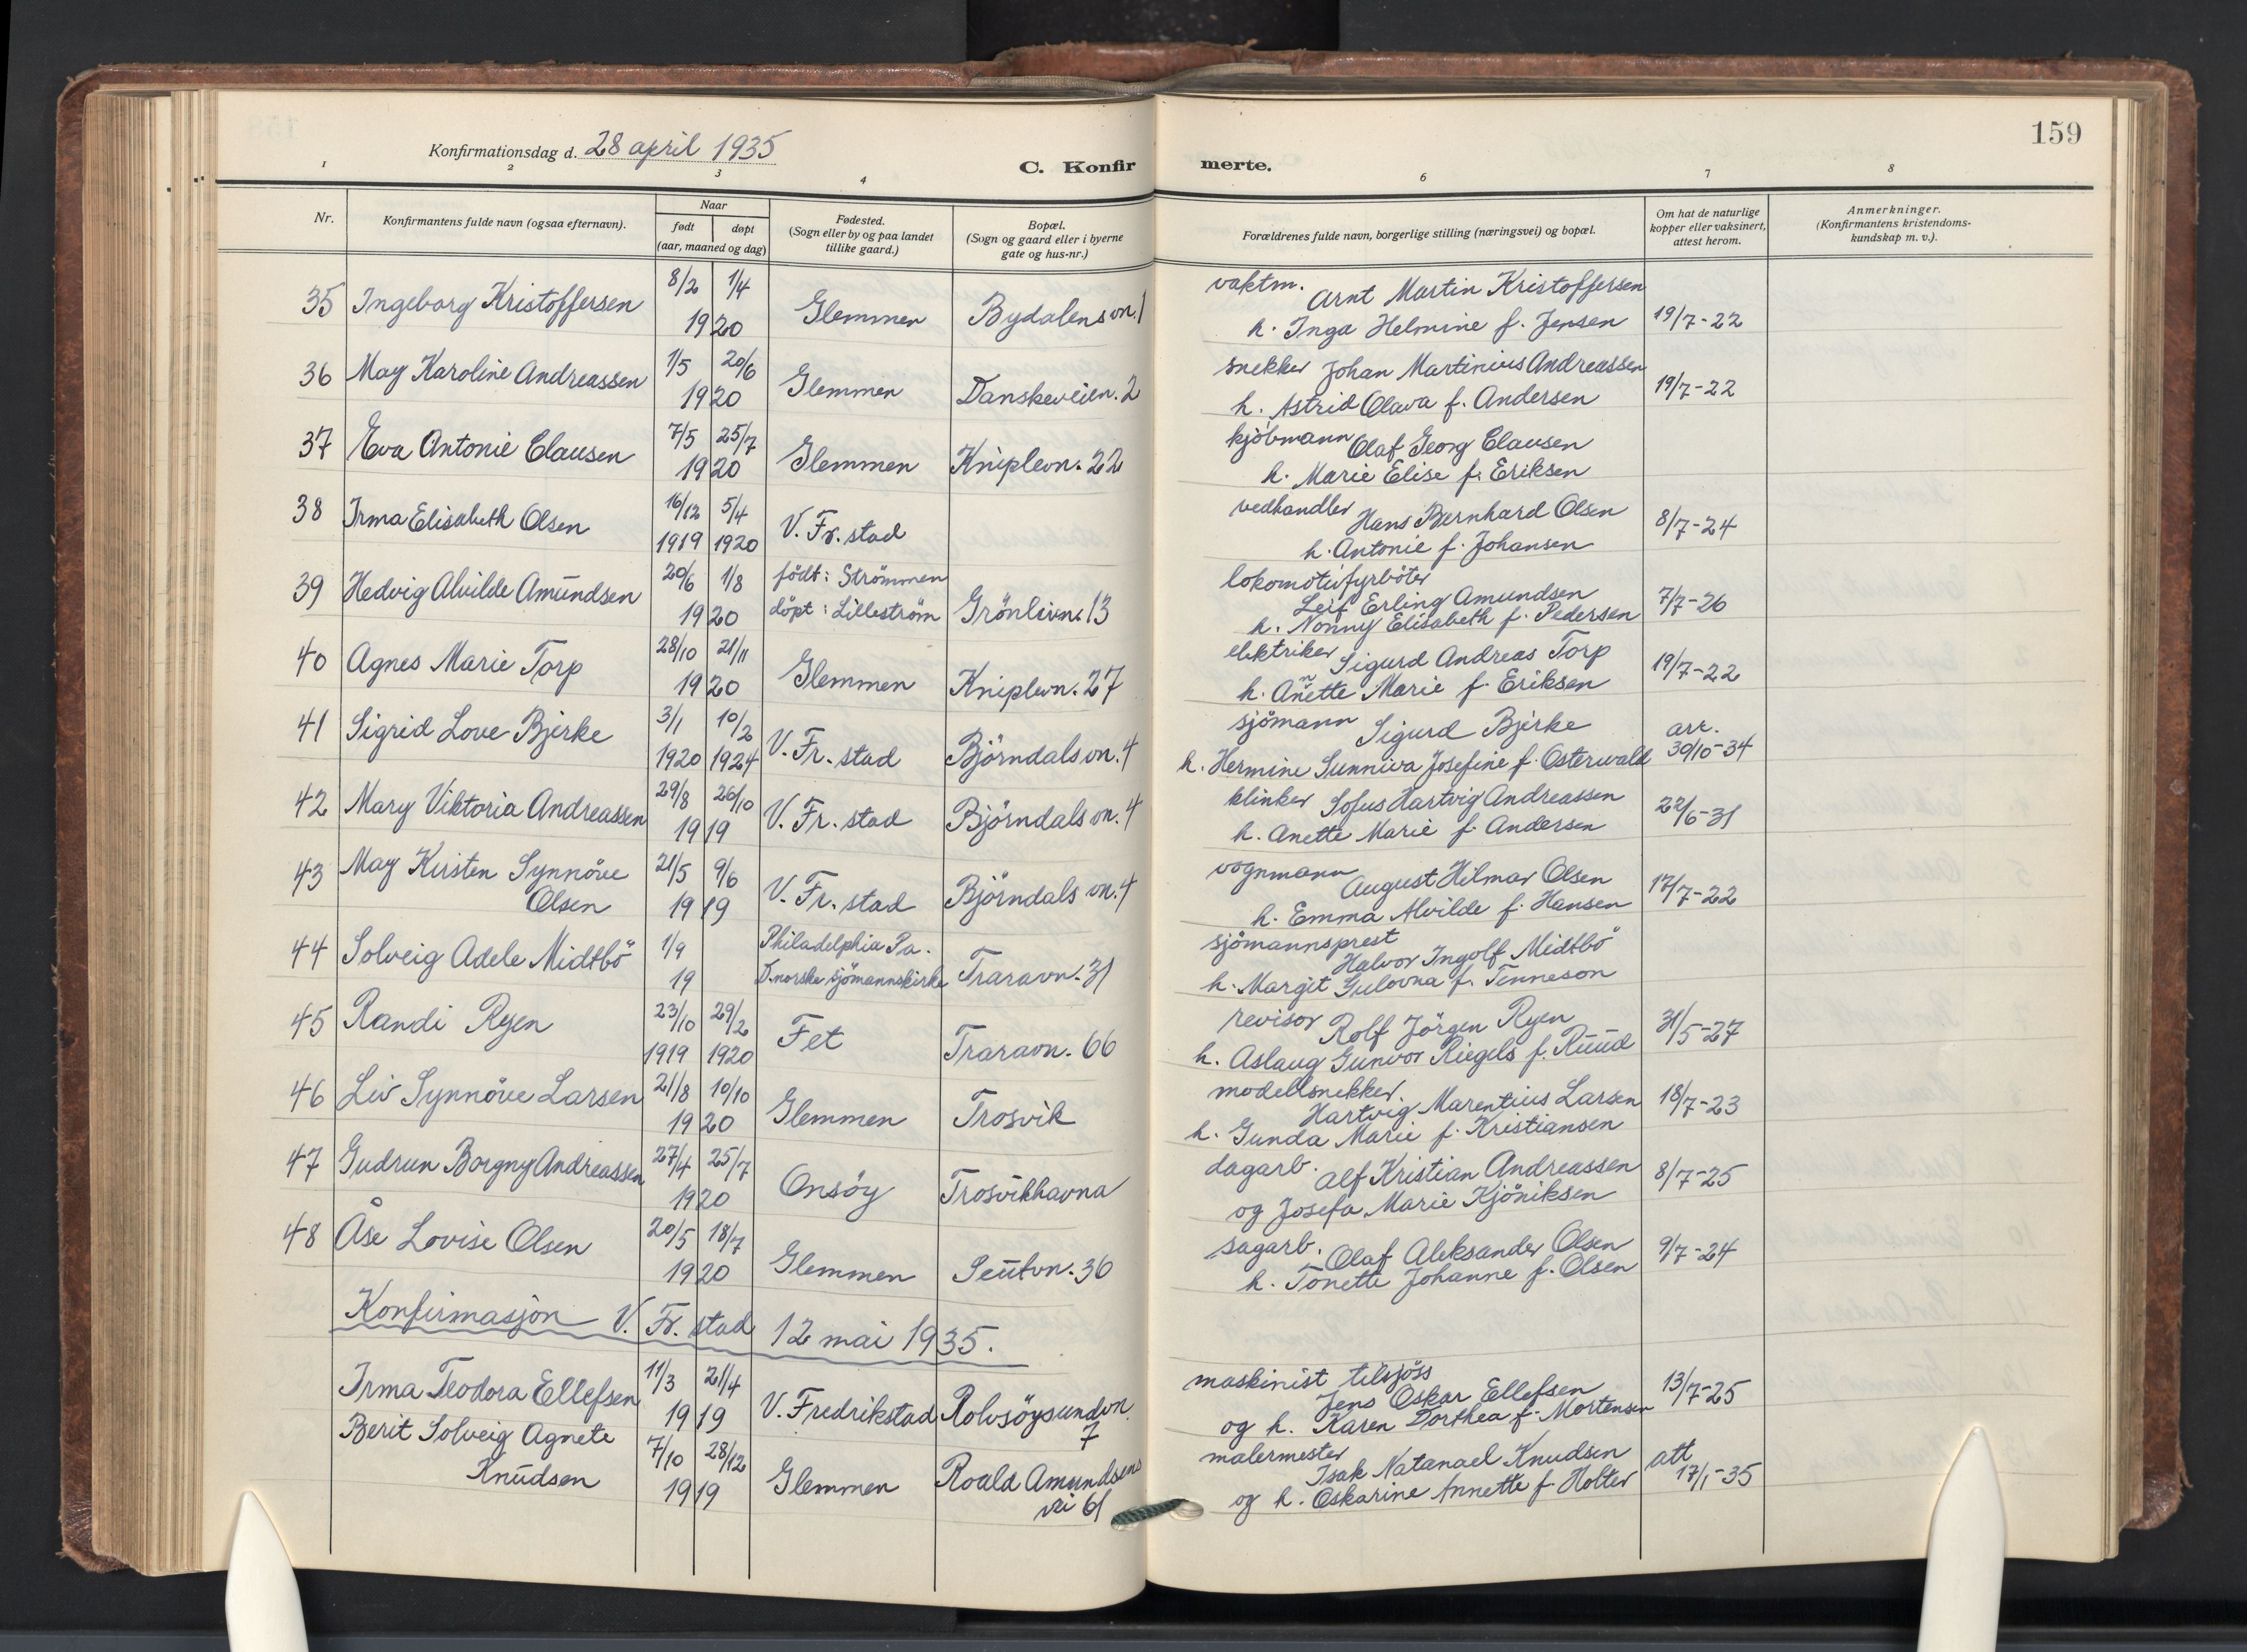 159
Konfirmationsdag d. 28 april 1935
C. Konfir merte.
1 2 3 4 6 7 8
Nr.
Konfirmantens fulde navn (ogsaa efternavn).
Naar
født døpt
(aar, maaned og dag)
Fødested.
(Sogn eller by og paa landet
tillike gaard.)
Bopæl.
(Sogn og gaard eller i byerne
gate og hus-nr.)
Forældrenes fulde navn, borgerlige stilling (næringsvei) og bopæl.
Om hat de naturlige
kopper eller vaksinert,
attest herom.
Anmerkninger.
(Konfirmantens kristendoms-
kundskap m. v.).
35 Ingeborg Kristoffersen 8/2 1/4 1920 Glemmen Bydalens vn. 1
vaktm. Arnt Martin Kristoffersen
h. Inga Helmine f. Jensen 19/7-22
36 May Karoline Andreassen 1/5 20/6 1920 Glemmen Danskeveien. 2
snekker Johan Martinius Andreassen
h. Astrid Olava f. Andersen 19/7-22
37 Eva Antonie Clausen 7/5 25/7 1920 Glemmen Kniplevn. 22
kjöbmann Olaf Georg Clausen
h. Marie Elise f. Eriksen
38 Irma Elisabeth Olsen 16/12 1919 5/4 1920 V. Fr. stad
vedhandler Hans Bernhard Olsen
h. Antonie f. Johansen 8/7-24
39 Hedvig Alvilde Amundsen 20/6 1/8 1920 födt: Strömmen
döpt: Lilleström Grönlivn. 13
lokomotivfyrböter
Leif Erling Amundsen
h. Nonny Elisabeth f. Pedersen 7/7-26
40 Agnes Marie Torp 28/10 21/11 1920 Glemmen Kniplevn. 27
elektriker Sigurd Andreas Torp
h. Annette Marie f. Eriksen 19/7-22
41 Sigrid Love Bjerke 3/1 1920 10/2 1924 V. Fr. stad Björndals vn. 4
sjömann Sigurd Bjerke
h. Hermine Sunniva Josefine f. Osterwald arr. 30/10-34
42 Mary Viktoria Andreassen 29/8 26/10 1919 V. Fr. stad Björndals vn. 4
klinker Sofus Hartvig Andreassen
h. Anette Marie f. Andersen 22/6-31
43 May Kirsten Synnöve
Olsen 21/5 9/6 1919 V. Fr. stad Björndals vn. 4
vognmann August Hilmar Olsen
h. Emma Alvilde f. Hansen 17/7-22
44 Solveig Adele Midtbö 1/9 19 Philadelphia Pa.
D. norske sjömannskirke Traravn. 31
sjömannsprest
Halvor Ingolf Midtbö
h. Margit Gulovna f. Tenneson
45 Randi Ryen 23/10 1919 29/2 1920 Fet Traravn. 66
revisor Rolf Jörgen Ryen
h. Aslaug Gunvor Riegels f. Ruud 31/5-27
46 Liv Synnöve Larsen 21/8 10/10 1920 Glemmen Trosvik
modellsnekker.
Hartvig Marentius Larsen
h. Gunda Marie f. Kristiansen 18/7-23
47 Gudrun Borgny Andreassen 27/4 25/7 1920 Onsöy Trosvikhavna
dagarb. Alf Kristian Andreassen
og Josefa Marie Kjöniksen 8/7-25
48 Åse Lovise Olsen 20/5 18/7 1920 Glemmen Seutvn. 36
sagarb. Olaf Aleksander Olsen
h. Tonette Johanne f. Olsen 9/7-24
Konfirmasjon V. Fr. stad 12 mai 1935.
Irma Teodora Ellefsen 11/3 21/4 1919 V. Fredrikstad Rolvsöysundvn. 7
maskinist tilsjöss
Jens Oskar Ellefsen
og h. Karen Dorthea f. Mortensen 13/7-25
Berit Solveig Agnete
Knudsen 7/10 28/12 1919 Glemmen Roald Amundsens
vei 61
malermester
Isak Natanael Knudsen
og h. Oskarine Annette f. Holter att 17/1-35